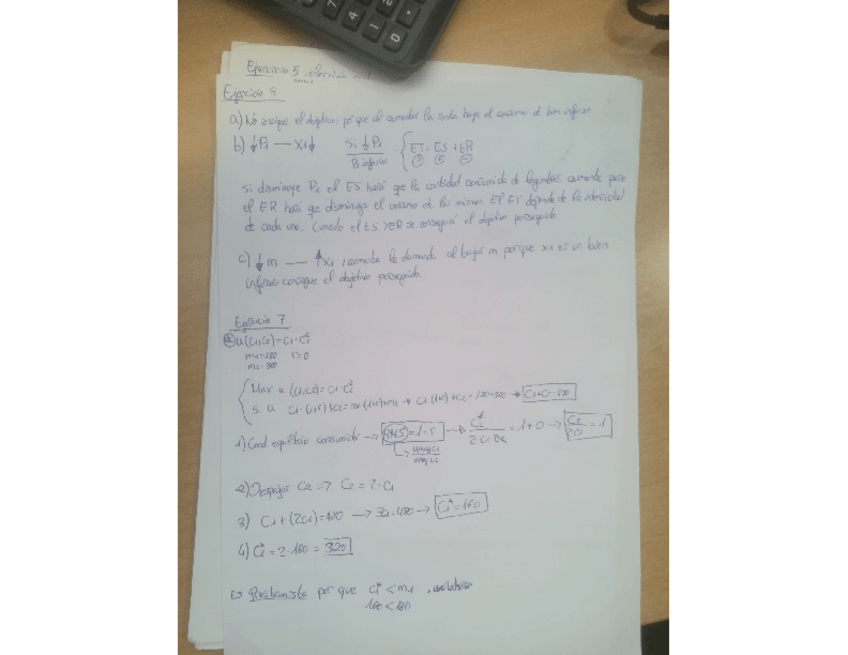 Ejercicio 5
Ejercicio 9
a) No consigue el objetivo, por que al aumentar la renta baja el consumo de bien inferior
b) ↓P1 — X1↓ Si ↓P1 { ET = ES + ER
B inferior
Si disminuye P1 el ES hará que la cantidad consumida de legumbres aumente pero
el ER hará que disminuya el consumo de las mismas. El ET depende de la intensidad
de cada uno. Cuando el ES > ER se conseguirá el objetivo perseguido
c) ↓m — ↑X1 , aumenta la demanda al bajar m porque X1 es un bien
inferior consigue el objetivo perseguido.
Ejercicio 7
a) u(C1,C2) = C1·C2²
m1=180 r=0
m2=300
Max u (C1,C2) = C1·C2²
s.a C1·(1+r)+C2=m1·(1+r)+m2 → C1(1+r)+C2=180+300 → C1+C2=480
1) Cond equilibrio consumidor → RMS=1+r → C2²/2C1C2 = 1+0 → C2/2C1 = 1
→ UMgC1
UMgC2
2) Despejar C2 => C2 = 2·C1
3) C1+(2C1)=480 → 3C1=480 → C1*=160
4) C2*=2·160=320
Es Prestamista por que C1*<m1
160<180